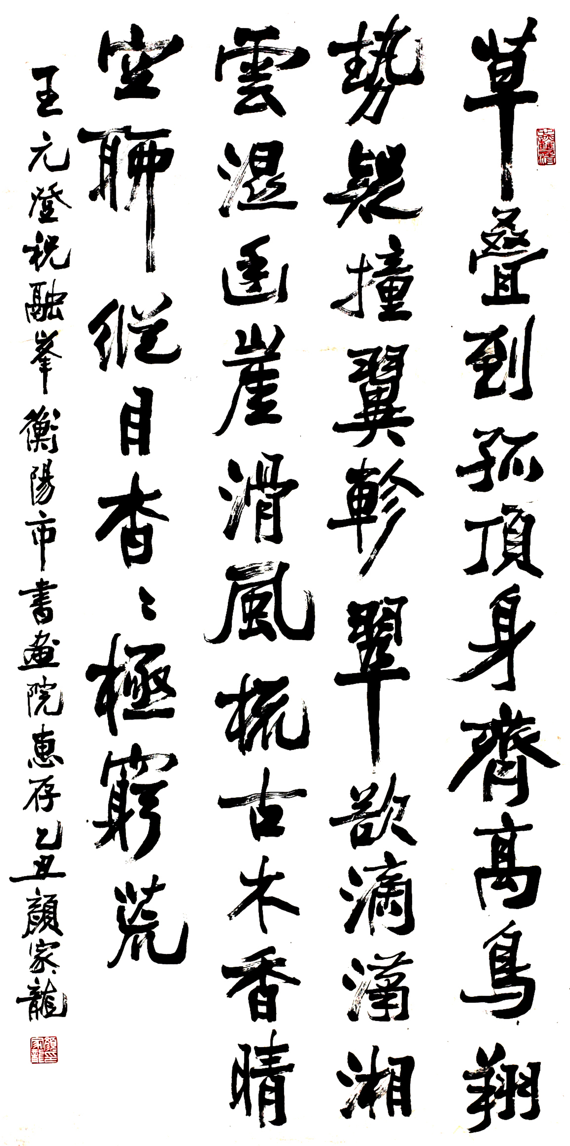 草叠到孤頂身齊高鳥翔
勢疑撞翼軫翠欲滴瀟湘
雲湿幽崖滑風梳古木香晴
空聊縱目杳〻極窮荒
王元登祝融峯衡陽市書畫院惠存乙丑顏家龍